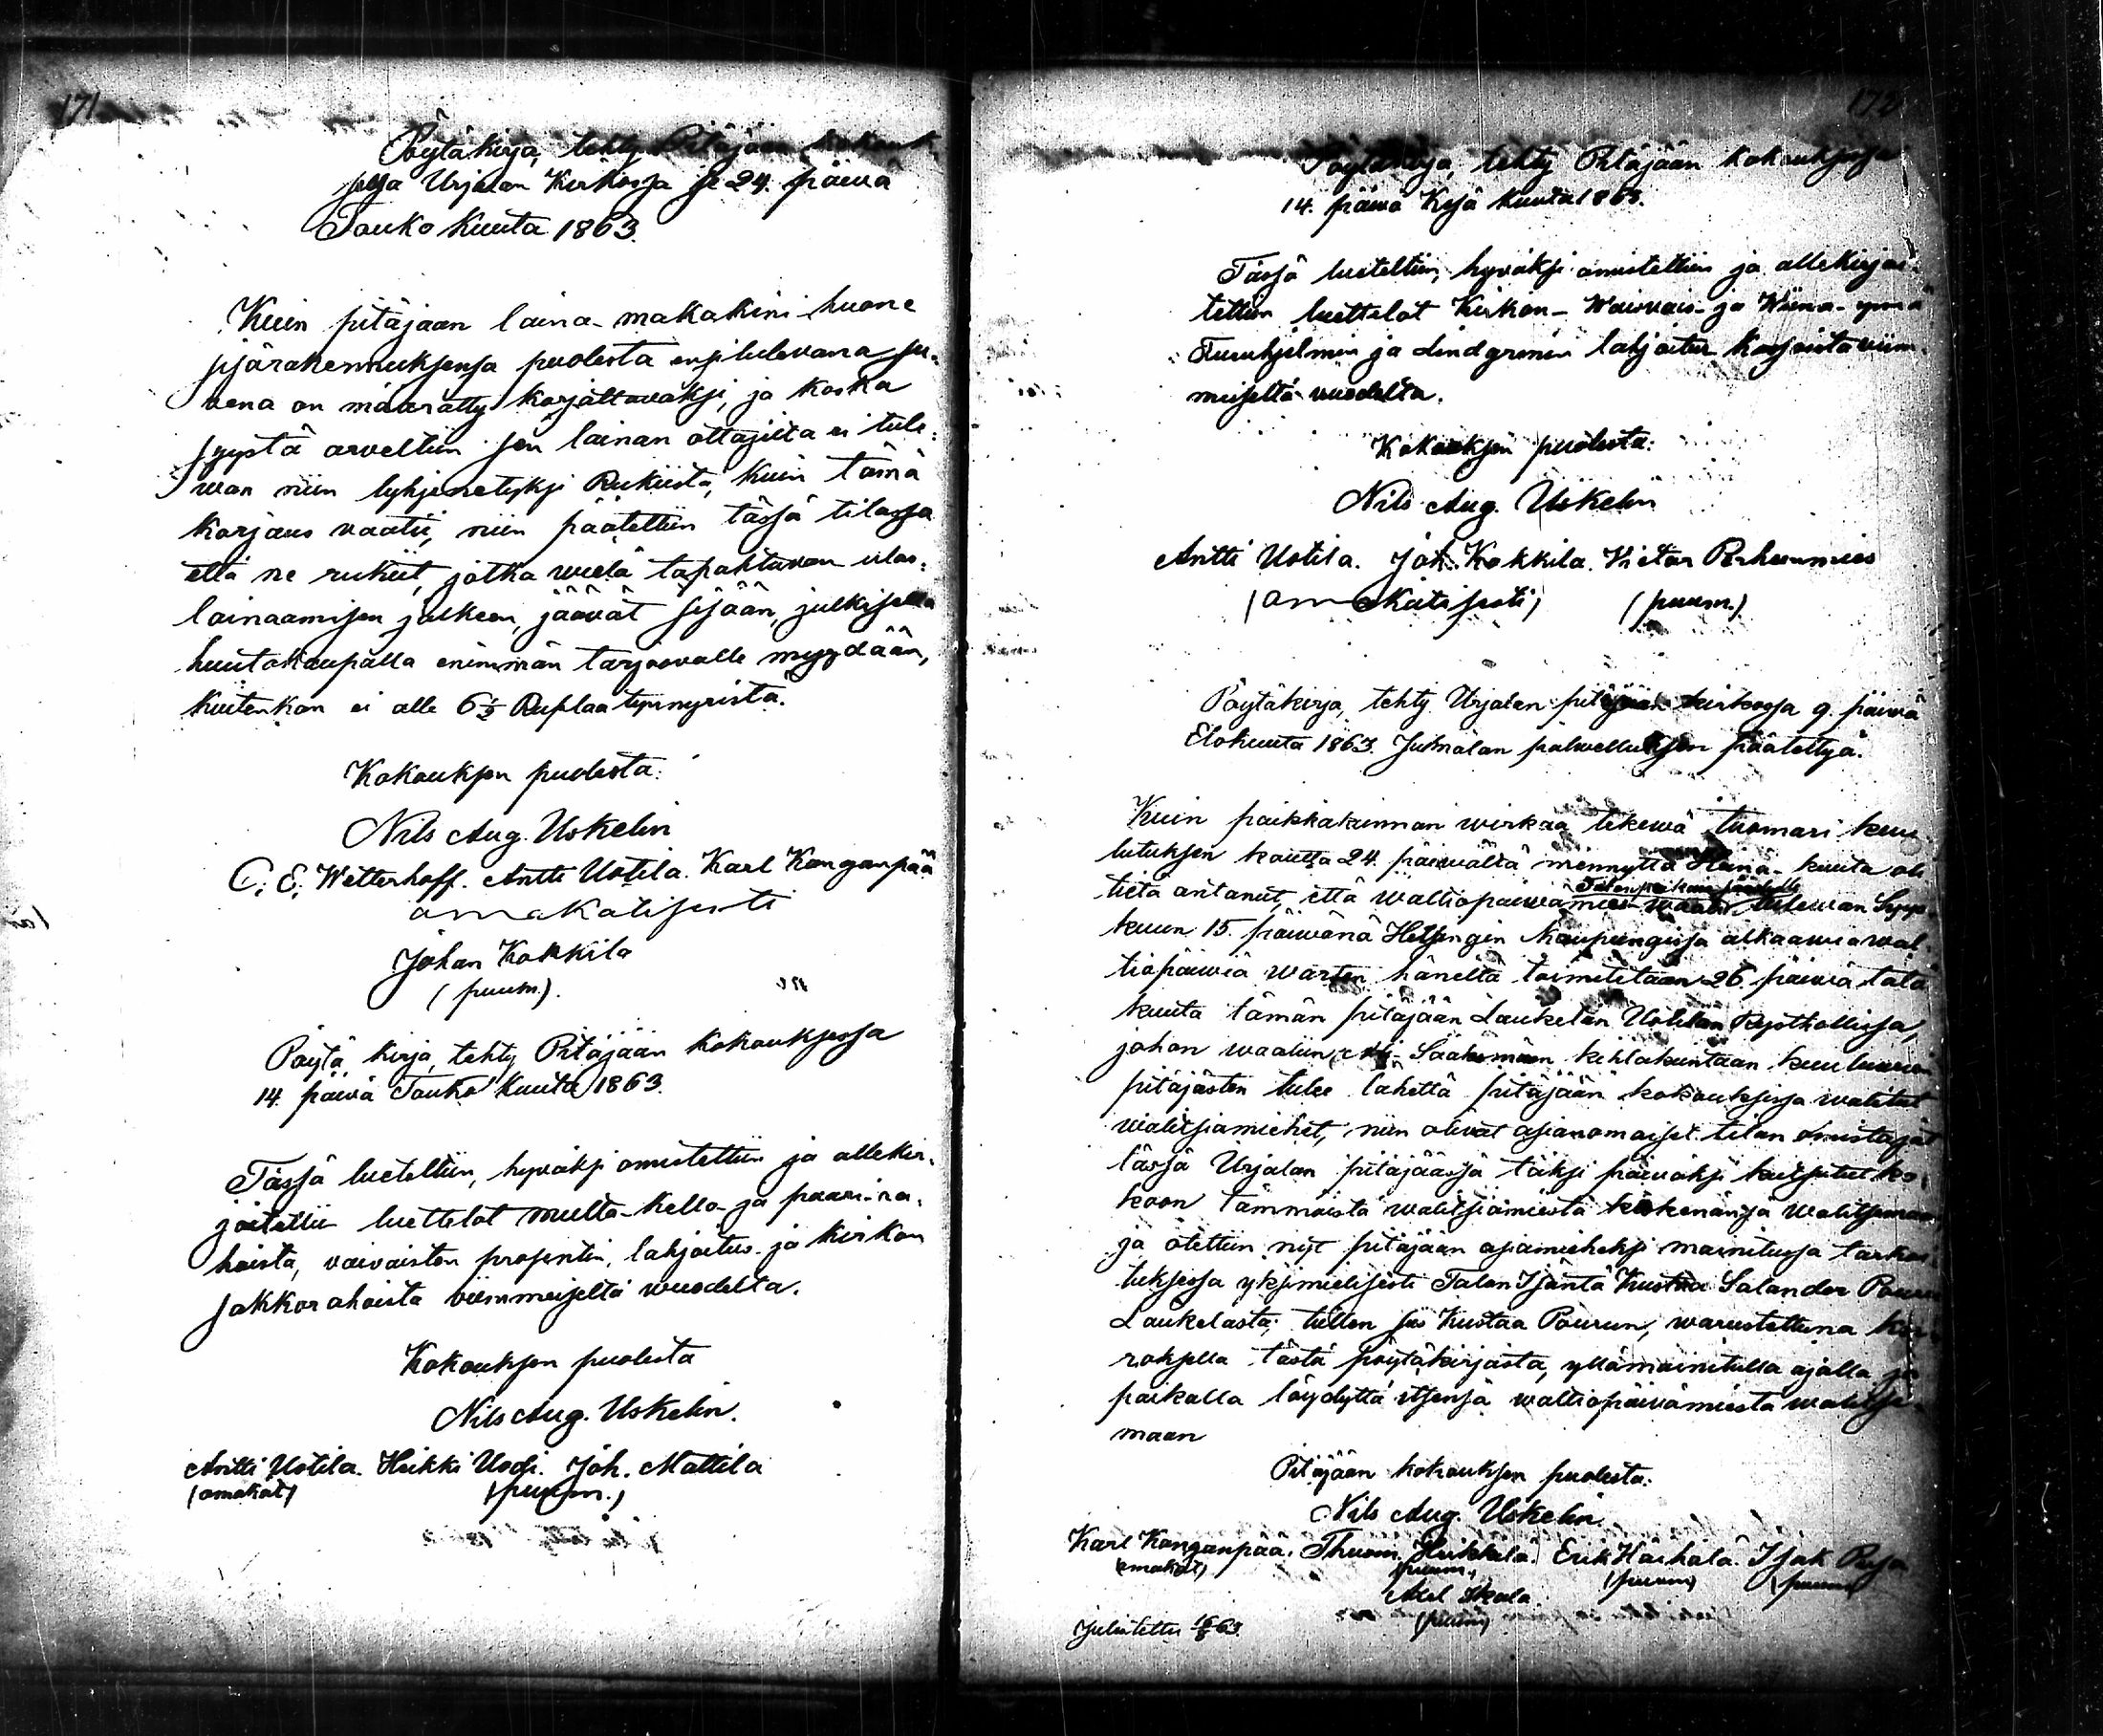 171
Pöytäkirja, tehty Pitäjään kokouk-
sessa Urjalan Kirkossa se 24. päivä
Touko Kuuta 1863.
Kuin pitäjään laina-makasini-huone
sisärakennuksensa puolesta ensitulevana su-
vena on määrätty korjattavaksi, ja koska
syystä arveltiin sen lainan ottajilta ei tule-
wan niin lyhjenetyksi Rukiista, kuin tämä
korjaus vaatii, niin päätettiin tässä tilassa
että ne rukiit, jotka wielä tapahtuvan ulos-
lainaamisen jälkeen, jäävät sijään, julkisella
huutokaupalla enimmän tarjoovalle myydään,
kuitenkan ei alle 6½ Ruplaa tynnyristä.
Kokouksen puolesta:
Nils Aug. Uskelin
C. E. Wetterhoff. Antti Uotila. Karl Kanganpää
omakätisesti
Johan Kokkila
(puum.).
Pöytä kirja, tehty Pitäjään kokouksessa
14. päivä Touko Kuuta 1863.
Tässä lueteltiin, hyväksi omistettiin ja allekir-
joitettiin luettelot multa-kello- ja paari-ra-
hoista, vaivaisten prosentin, lahjoitus- ja kirkon
sakkorahoista viimmeiseltä wuodelta.
Kokouksen puolesta
Nils Aug. Uskelin.
Antti Uotila. Heikki Uodi. Joh. Mattila
(omakät) (puum.)
172
Pöytäkirja, tehty Pitäjään kokouksessa
14. päivä Kesä kuuta 1863.
Tässä lueteltiin, hyväksi omistettiin ja allekirjoi-
tettiin luettelot Kirkon- Waivais- ja Wiina- ynnä
Furuhjelmin ja Lindgrenin lahjoitus kassoista viim-
meiseltä wuodelta.
Kokouksen puolesta:
Nils Aug. Uskelin
Antti Uotila. Joh. Kokkila. Victor Perheenmies
(omakätisesti) (puum.)
Pöytäkirja, tehty Urjalan pitäjään kirkossa 9. päivä
Elokuuta 1863. Jumalan palvelluksen päätettyä.
Kuin paikkakunnan wirkaa tekewä tuomari kuu-
lutuksen kautta 24. päivältä mennyttä Heinä-kuuta oli
tietä antanut, että waltiopäivämies Talonpoikain säädylle tulewan Syys-
kuun 15. päivänä Helsingin Kaupungissa alkaawia wal-
tiopäiviä warten häneltä toimitetaan 26. päivä tätä
kuuta tämän pitäjään Laukelan Uotilan Rysthollissa,
johon waaliin Sääksmäen kihlakuntaan kuuluvien
pitäjästen tulee lähettä pitäjään kokouksissa walitut
walitsiamiehet, niin olivat asianomaiset tilan omistajat
tässä Urjalan pitäjäässä täksi päiväksi kutsutut ko-
koon tämmöistä walitsiamiestä keskenänsä walitsemaan
ja otettiin nyt pitäjään asiamieheksi mainitussa tarkoi-
tuksessa yksimielisesti Talon Isäntä Kustaa Salander Pouru
Laukelasta; tullen siis Kustaa Pourun, warustettuna kir-
roksella tästä pöytäkirjasta, yllämainitulla ajalla ja
paikalla löydyttä itsensä waltiopäivämiestä walitse-
maan
Pitäjään kokouksen puolesta:
Nils Aug. Uskelin.
Karl Kanganpää. Thuom. Heikkilä. Erik Häihälä. Isak
(omakät) (puum.) (puum) (puum)
Skala
(puum)
Julistettu 16/8 63.